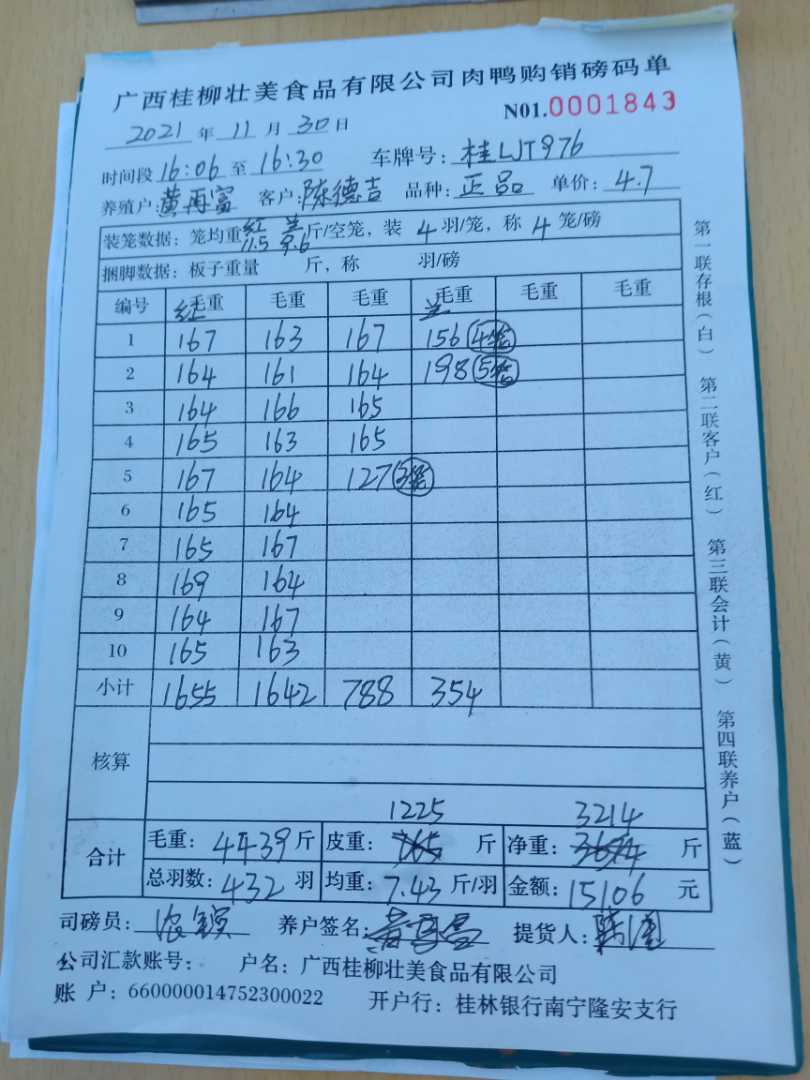 广西桂柳壮美食品有限公司肉鸭购销磅码单
N01.0001843
2021 年 11 月 30 日
时间段 16:06 至 16:30 车牌号: 桂LJT976
养殖户: 黄再富 客户: 陈德吉 品种: 正品 单价: 4.7
装笼数据: 笼均重 红11.5 兰9.6 斤/空笼, 装 4 羽/笼, 称 4 笼/磅
捆脚数据: 板子重量 斤, 称 羽/磅
编号 红毛重 毛重 毛重 兰毛重 毛重 毛重
1 167 163 167 156 4笼
2 164 161 164 198 5笼
3 164 166 165
4 165 163 165
5 167 164 127 3笼
6 165 164
7 165 167
8 169 164
9 164 167
10 165 163
小计 1655 1642 788 354
核算
1225 3214
合计
毛重: 4439 斤 皮重: 斤 净重: 斤
总羽数: 432 羽 均重: 7.43 斤/羽 金额: 15106 元
司磅员: 养户签名: 提货人:
公司汇款账号: 户名: 广西桂柳壮美食品有限公司
账 户: 660000014752300022 开户行: 桂林银行南宁隆安支行
第一联存根(白) 第二联客户(红) 第三联会计(黄) 第四联养户(蓝)